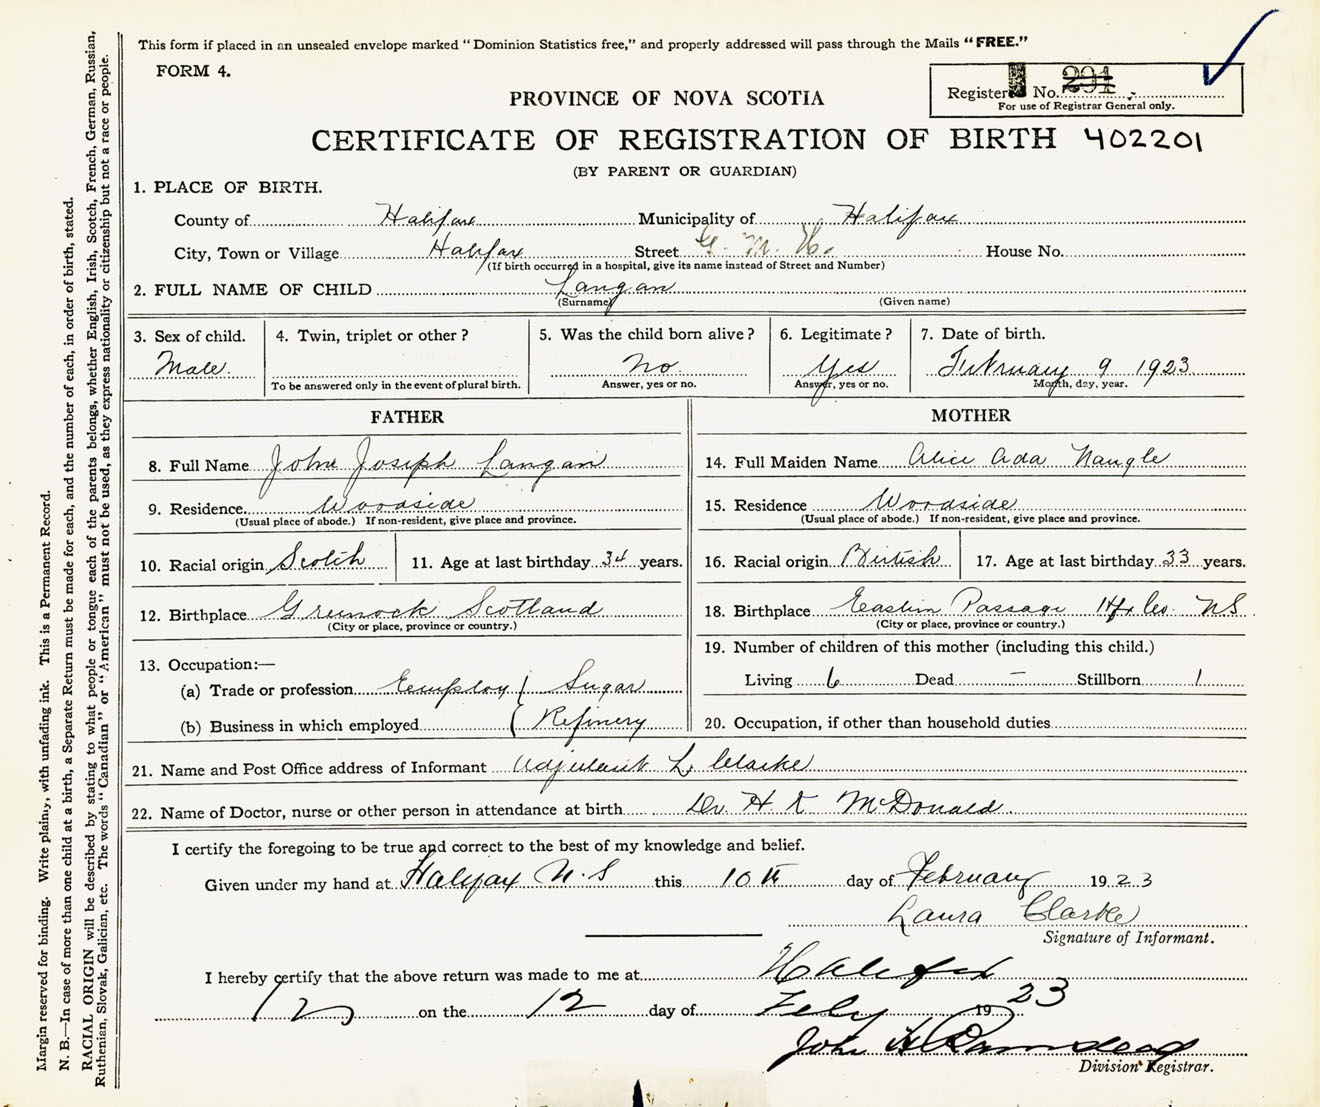 This form if placed in an unsealed envelope marked "Dominion Statistics free," and properly addressed will pass through the Mails "FREE."
FORM 4.
Registered No. 291
For use of Registrar General only.
PROVINCE OF NOVA SCOTIA
CERTIFICATE OF REGISTRATION OF BIRTH 402201
(BY PARENT OR GUARDIAN)
1. PLACE OF BIRTH.
County of Halifax Municipality of Halifax
City, Town or Village Halifax Street G. M. H. House No.
(If birth occurred in a hospital, give its name instead of Street and Number)
2. FULL NAME OF CHILD Langan
(Surname) (Given name)
3. Sex of child. 4. Twin, triplet or other? 5. Was the child born alive? 6. Legitimate? 7. Date of birth.
Male. No Yes February 9 1923
To be answered only in the event of plural birth. Answer, yes or no. Answer, yes or no. Month, day, year.
FATHER MOTHER
8. Full Name John Joseph Langan 14. Full Maiden Name Alice Ada Naugle
9. Residence Woodside 15. Residence Woodside
(Usual place of abode.) If non-resident, give place and province. (Usual place of abode.) If non-resident, give place and province.
10. Racial origin Scotch 11. Age at last birthday 34 years. 16. Racial origin British 17. Age at last birthday 33 years.
12. Birthplace Greenock Scotland 18. Birthplace Eastern Passage Hfx Co. NS
(City or place, province or country.) (City or place, province or country.)
13. Occupation:— 19. Number of children of this mother (including this child.)
(a) Trade or profession Employ Sugar Living 6 Dead – Stillborn 1
(b) Business in which employed Refinery 20. Occupation, if other than household duties
21. Name and Post Office address of Informant Adjutant L. Clarke
22. Name of Doctor, nurse or other person in attendance at birth Dr. H. K McDonald
I certify the foregoing to be true and correct to the best of my knowledge and belief.
Given under my hand at Halifax N.S this 10th day of February 1923
Laura Clarke
Signature of Informant.
I hereby certify that the above return was made to me at Halifax
on the 12 day of Feby 1923
John H
Division Registrar.
Margin reserved for binding. Write plainly, with unfading ink. This is a Permanent Record.
N. B.—In case of more than one child at a birth, a Separate Return must be made for each, and the number of each, in order of birth, stated.
RACIAL ORIGIN will be described by stating to what people or tongue each of the parents belongs, whether English, Irish, Scotch, French, German, Russian,
Ruthenian, Slovak, Galician, etc. The words "Canadian" or "American" must not be used, as they express nationality or citizenship but not a race or people.